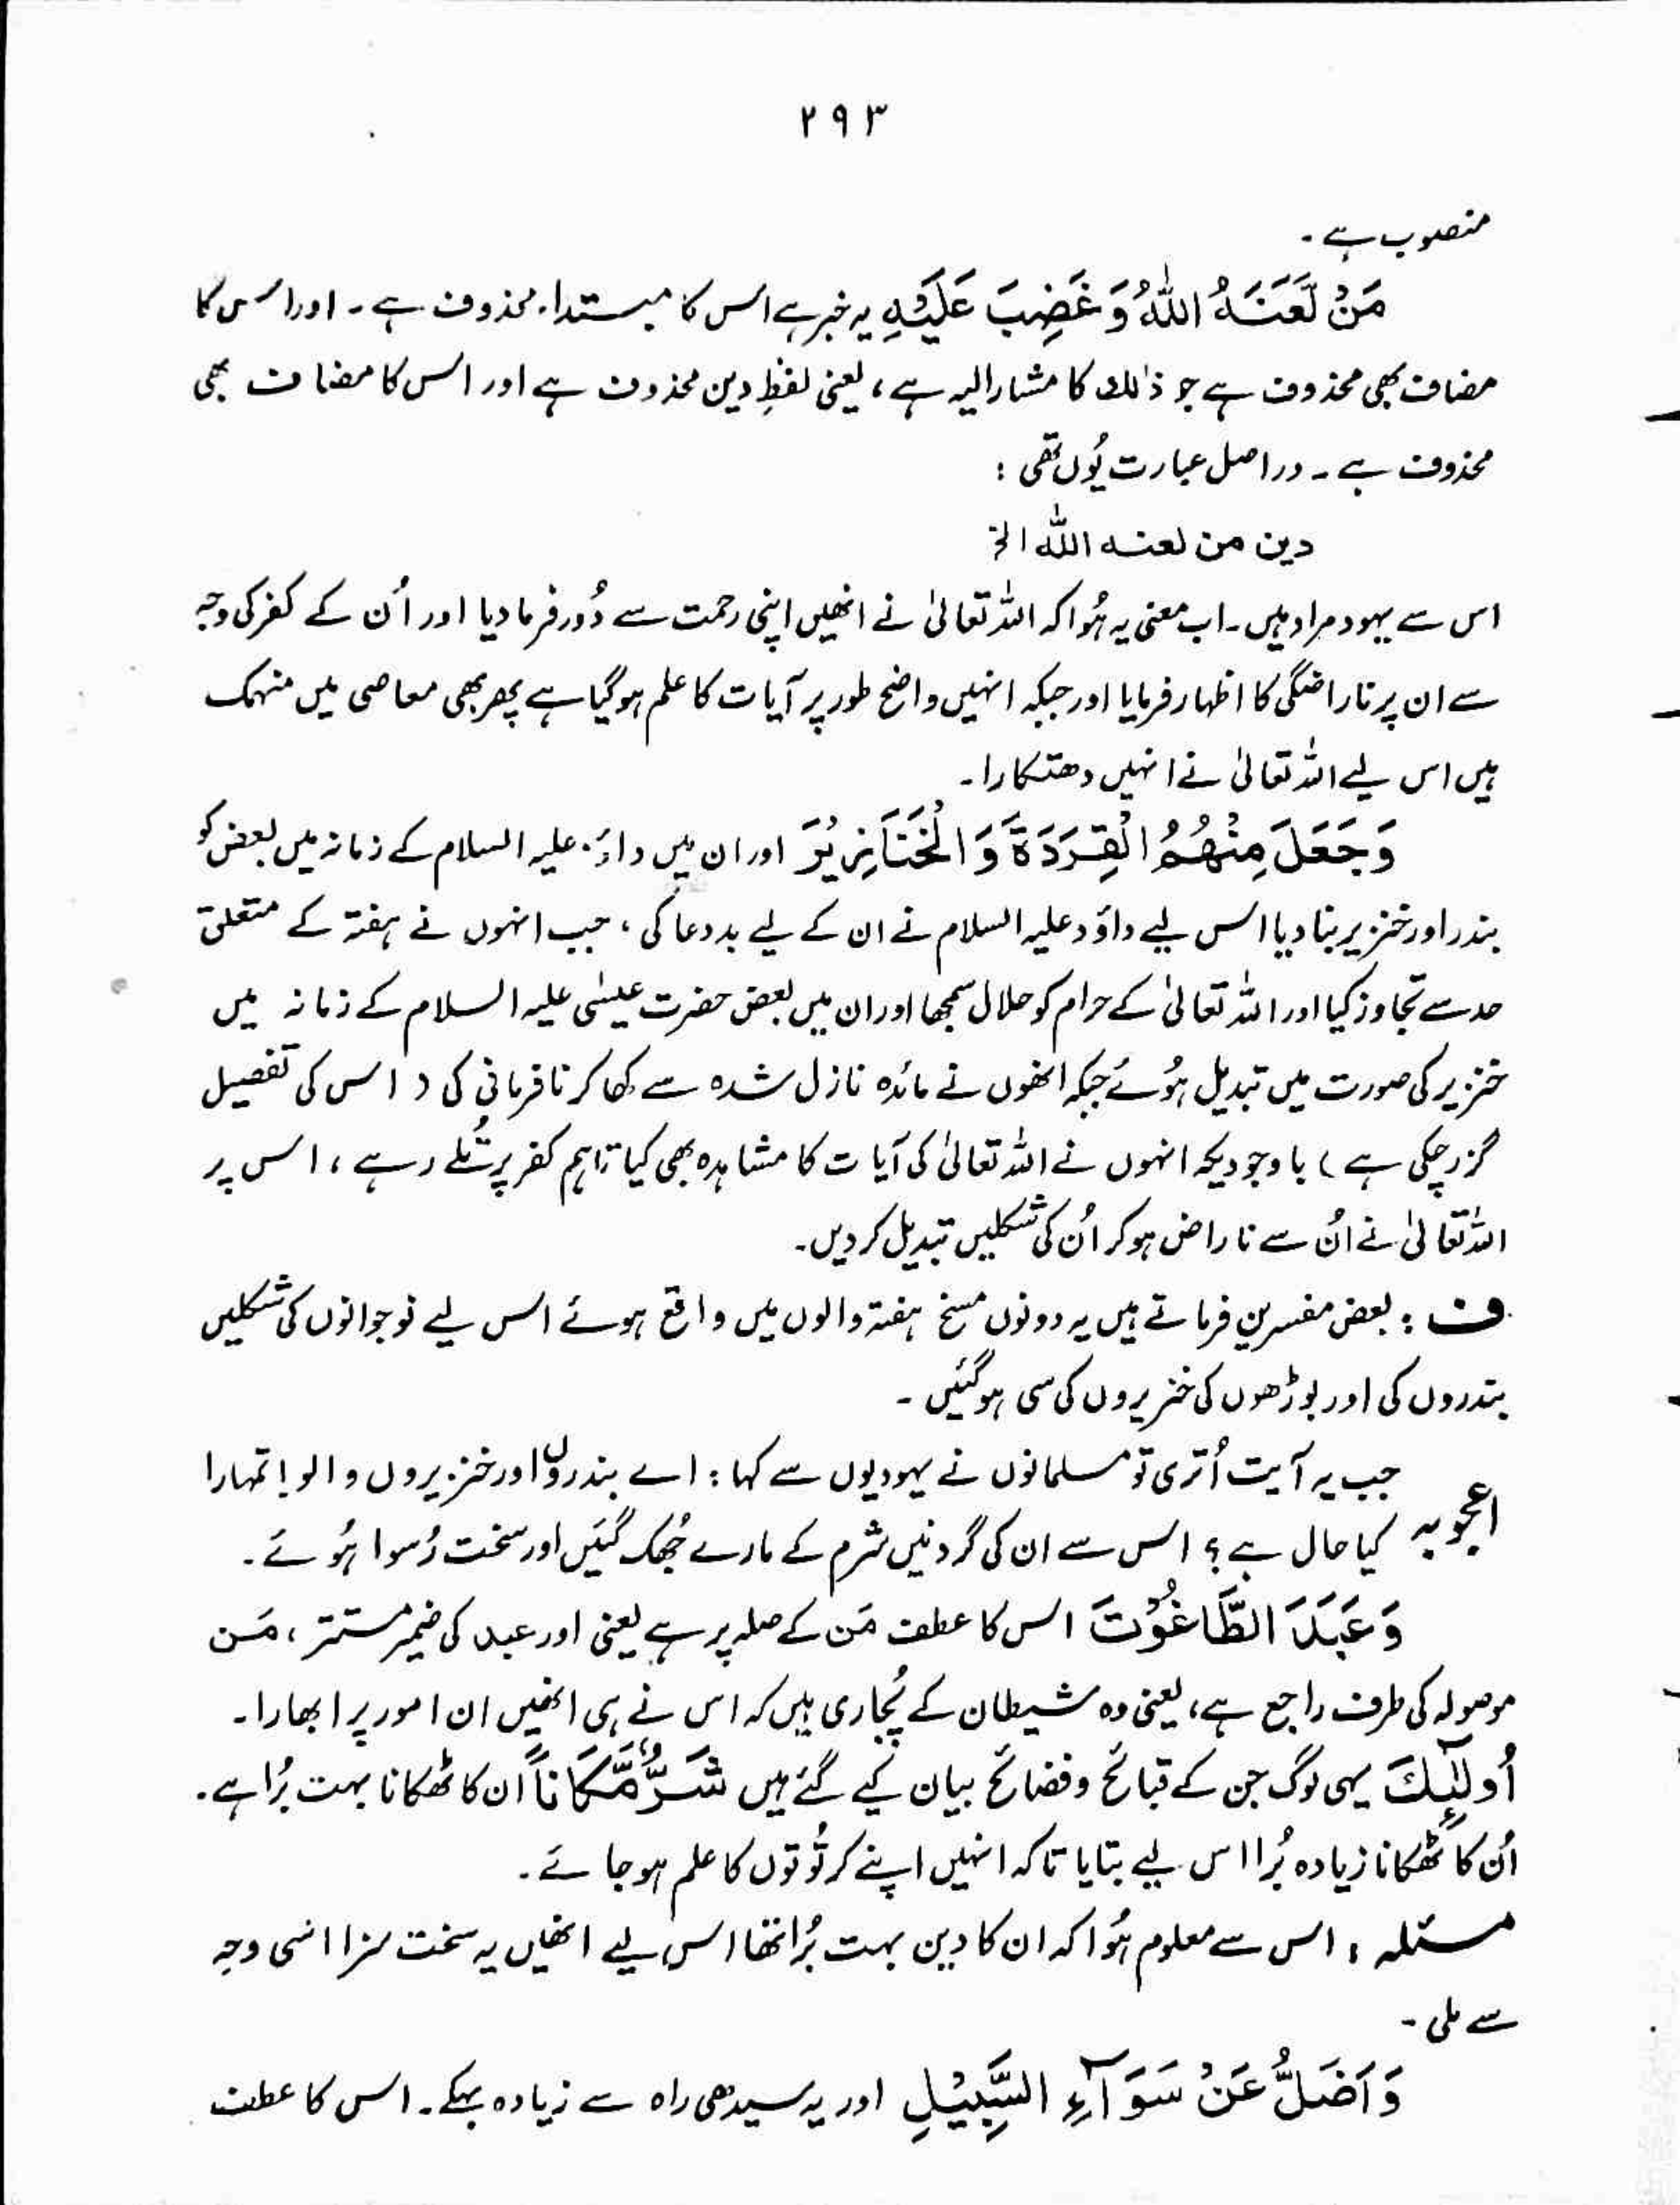 ۲۹۳
منصوب ہے۔
مَنْ لَّعَنَهُ اللّٰهُ وَغَضِبَ عَلَيْهِ یہ خبر ہے اس کا مبتداء محذوف ہے۔ اور اس کا
مضاف بھی محذوف ہے جو ذٰلك کا مشار الیہ ہے، یعنی لفظِ دین محذوف ہے اور اس کا مضاف بھی
محذوف ہے۔ دراصل عبارت یُوں تھی:
دین من لعنه اللّٰه الخ
اس سے یہود مراد ہیں۔ اب معنی یہ ہُوا کہ اللہ تعالیٰ نے انھیں اپنی رحمت سے دُور فرما دیا اور اُن کے کفر کی وجہ
سے ان پر ناراضگی کا اظہار فرمایا اور جبکہ انہیں واضح طور پر آیات کا علم ہو گیا ہے پھر بھی معاصی میں منہمک
ہیں اس لیے اللہ تعالیٰ نے انہیں دھتکارا۔
وَجَعَلَ مِنْهُمُ الْقِرَدَةَ وَالْخَنَازِيْرَ اور ان میں داؤد علیہ السلام کے زمانہ میں بعض کو
بندر اور خنزیر بنا دیا اس لیے داؤد علیہ السلام نے ان کے لیے بددعا کی، جب انہوں نے ہفتہ کے متعلق
حد سے تجاوز کیا اور اللہ تعالیٰ کے حرام کو حلال سمجھا اور ان میں بعض حضرت عیسٰی علیہ السلام کے زمانہ میں
خنزیر کی صورت میں تبدیل ہُوئے جبکہ انھوں نے مائدہ نازل شدہ سے کھا کر نافرمانی کی (اس کی تفصیل
گزر چکی ہے) باوجودیکہ انہوں نے اللہ تعالیٰ کی آیات کا مشاہدہ بھی کیا تاہم کفر پر تُلے رہے، اس پر
اللہ تعالیٰ نے اُن سے ناراض ہو کر اُن کی شکلیں تبدیل کر دیں۔
ف: بعض مفسرین فرماتے ہیں یہ دونوں مسخ ہفتہ والوں میں واقع ہوئے اس لیے نوجوانوں کی شکلیں
بندروں کی اور بوڑھوں کی خنزیروں کی سی ہو گئیں۔
جب یہ آیت اُتری تو مسلمانوں نے یہودیوں سے کہا: اے بندروں اور خنزیروں والو! تمہارا
اعجوبہ کیا حال ہے؟ اس سے ان کی گردنیں شرم کے مارے جُھک گئیں اور سخت رُسوا ہُوئے۔
وَعَبَدَ الطَّاغُوْتَ اس کا عطف مَن کے صلہ پر ہے یعنی اور عبد کی ضمیر مستتر، مَن
موصولہ کی طرف راجع ہے، یعنی وہ شیطان کے پُجاری ہیں کہ اس نے ہی انھیں ان امور پر ابھارا۔
اُولٰٓئِكَ یہی لوگ جن کے قبائح و فضائح بیان کیے گئے ہیں شَرٌّ مَّكَانًا ان کا ٹھکانا بہت بُرا ہے۔
اُن کا ٹھکانا زیادہ بُرا اس لیے بتایا تاکہ انہیں اپنے کرتُوتوں کا علم ہو جائے۔
مسئلہ: اس سے معلوم ہُوا کہ ان کا دین بہت بُرا تھا اس لیے انھیں یہ سخت سزا اسی وجہ
سے ملی۔
وَاَضَلُّ عَنْ سَوَآءِ السَّبِيْلِ اور یہ سیدھی راہ سے زیادہ بہکے۔ اس کا عطف